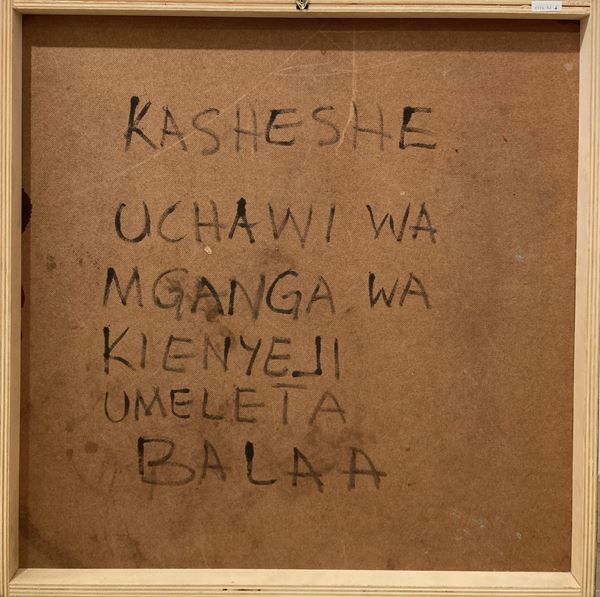 KASHESHE
UCHAWI WA
MGANGA WA
KIENYEJI
UMELETA
BALAA